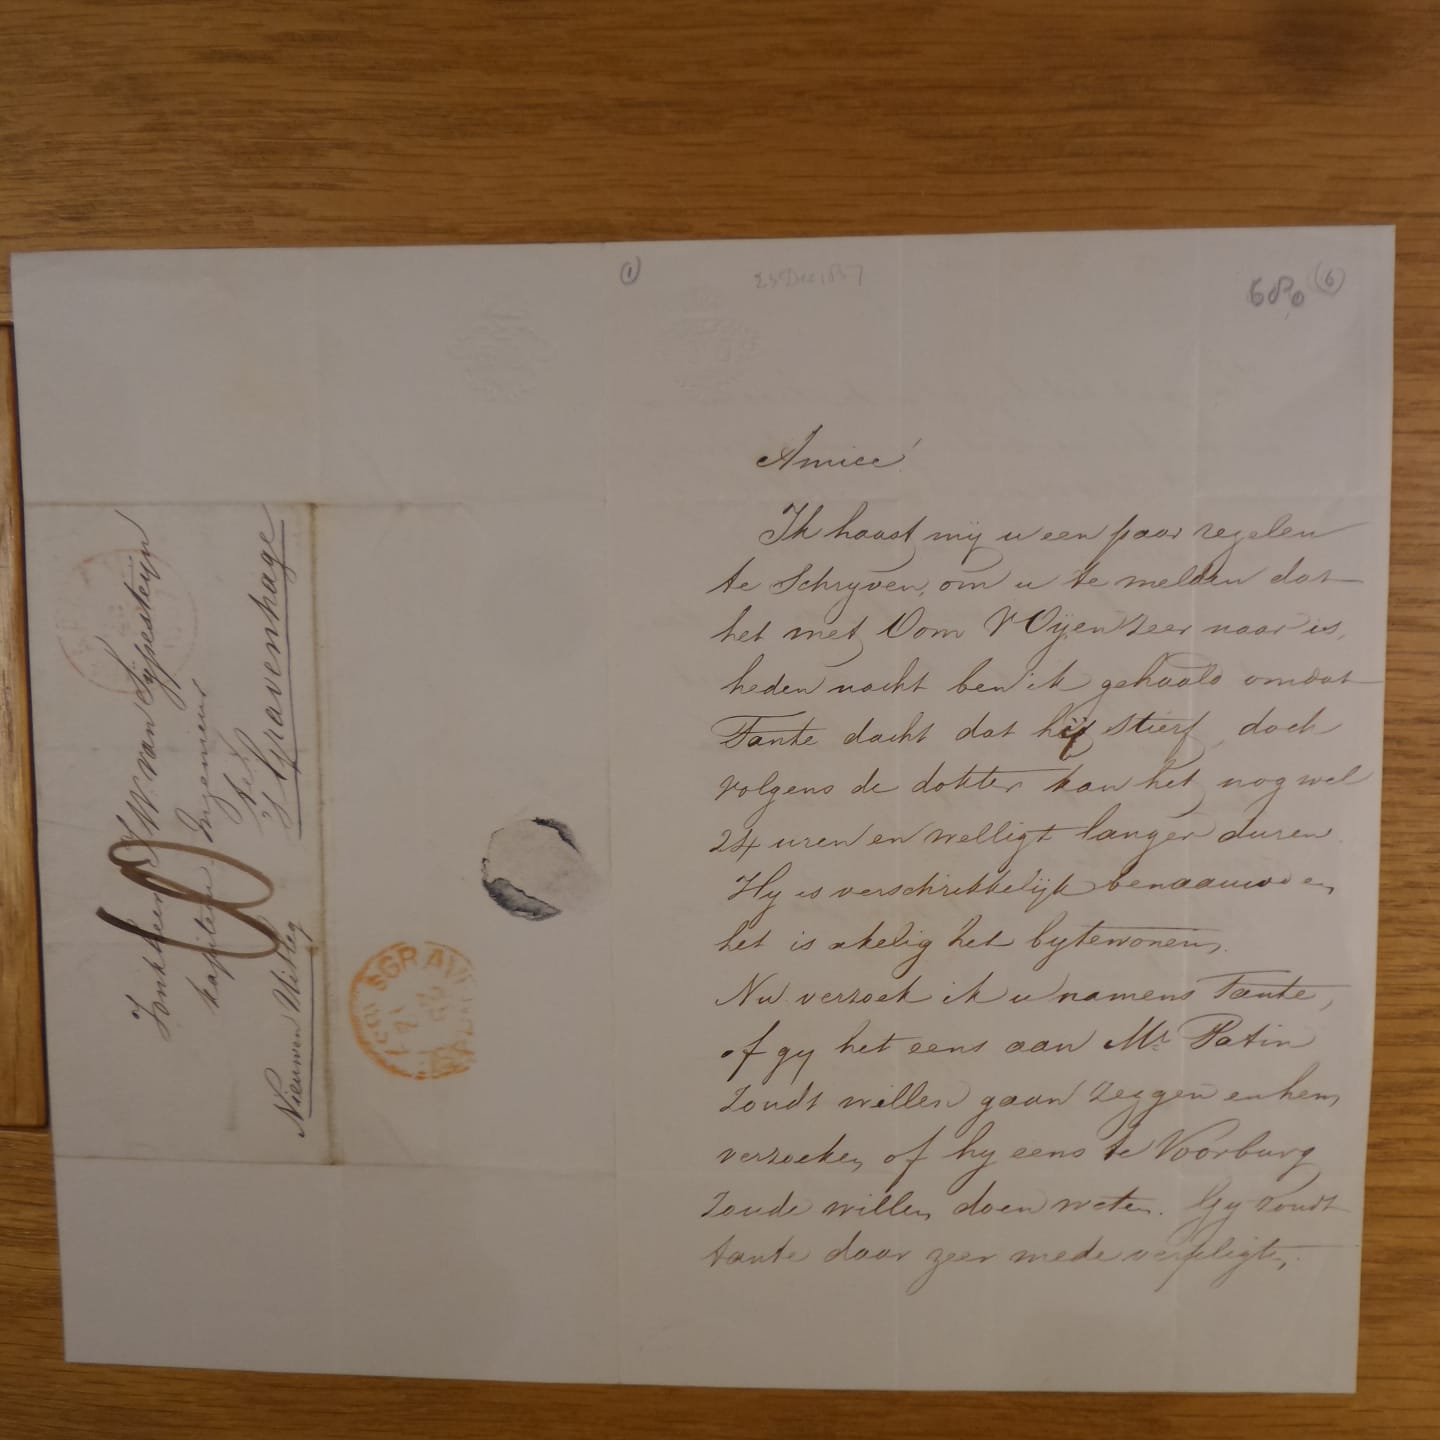 (1)
23 Dec 1857
680 (6)
Amice!
Ik haast mij u een paar regelen
te Schryven, om u te melden dat
het met Oom V Oijen zeer naar is,
heden nacht ben ik gehaald omdat
Tante dacht dat hij stierf doch
volgens de dokter kan het nog wel
24 uren en welligt langer duren
Hy is verschrikkelijk benaauwd en
het is akelig het bytewonen,
Nu verzoek ik u namens Tante,
of gy het eens aan Mr Patin
Zoudt willen gaan zeggen en hem
verzoeken of hy eens te Voorburg
Zoude willen doen weten. Gy zoudt
tante daar zeer mede verpligten,
Jonkheer J W. van Sijpesteijn
Kapitein Ingenieur
te
's Gravenhage
Nieuwen Uitleg
SGRAV